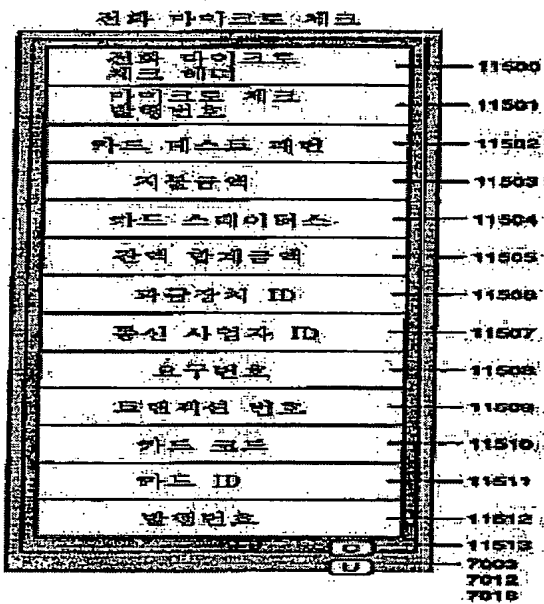 전화 마이크로 체크
전화 마이크로
체크 헤더
11500
마이크로 체크
발행번호
11501
카드 테스트 패턴
11502
지불금액
11503
카드 스테이터스
11504
잔액 합계금액
11505
과금장치 ID
11506
통신 사업자 ID
11507
요구번호
11508
트랜잭션 번호
11509
카드 코드
11510
카드 ID
11511
발행번호
11512
C
11513
U
7003
7012
7018